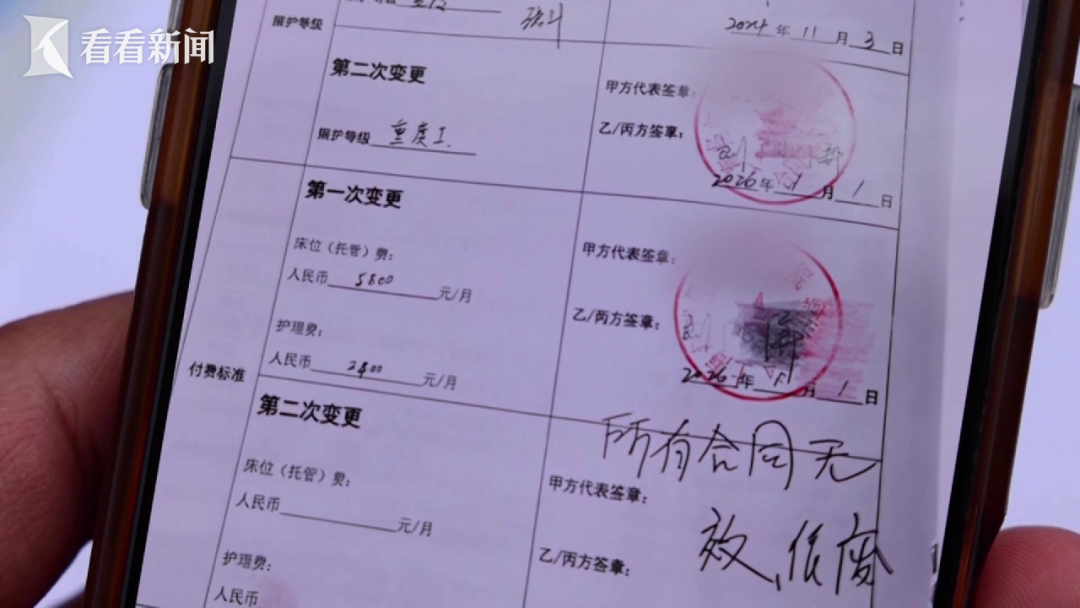 看看新闻
照护等级
2024年11月3日
第二次变更
甲方代表签章:
乙/丙方签章:
照护等级 重度I.
2026年1月1日
第一次变更
床位（托管）费:
甲方代表签章:
人民币 5800 元/月
乙/丙方签章:
护理费:
人民币 2400 元/月
2026年1月1日
付费标准
第二次变更
所有合同无
床位（托管）费:
甲方代表签章:
人民币 元/月
效、作废
乙/丙方签章:
护理费:
人民币